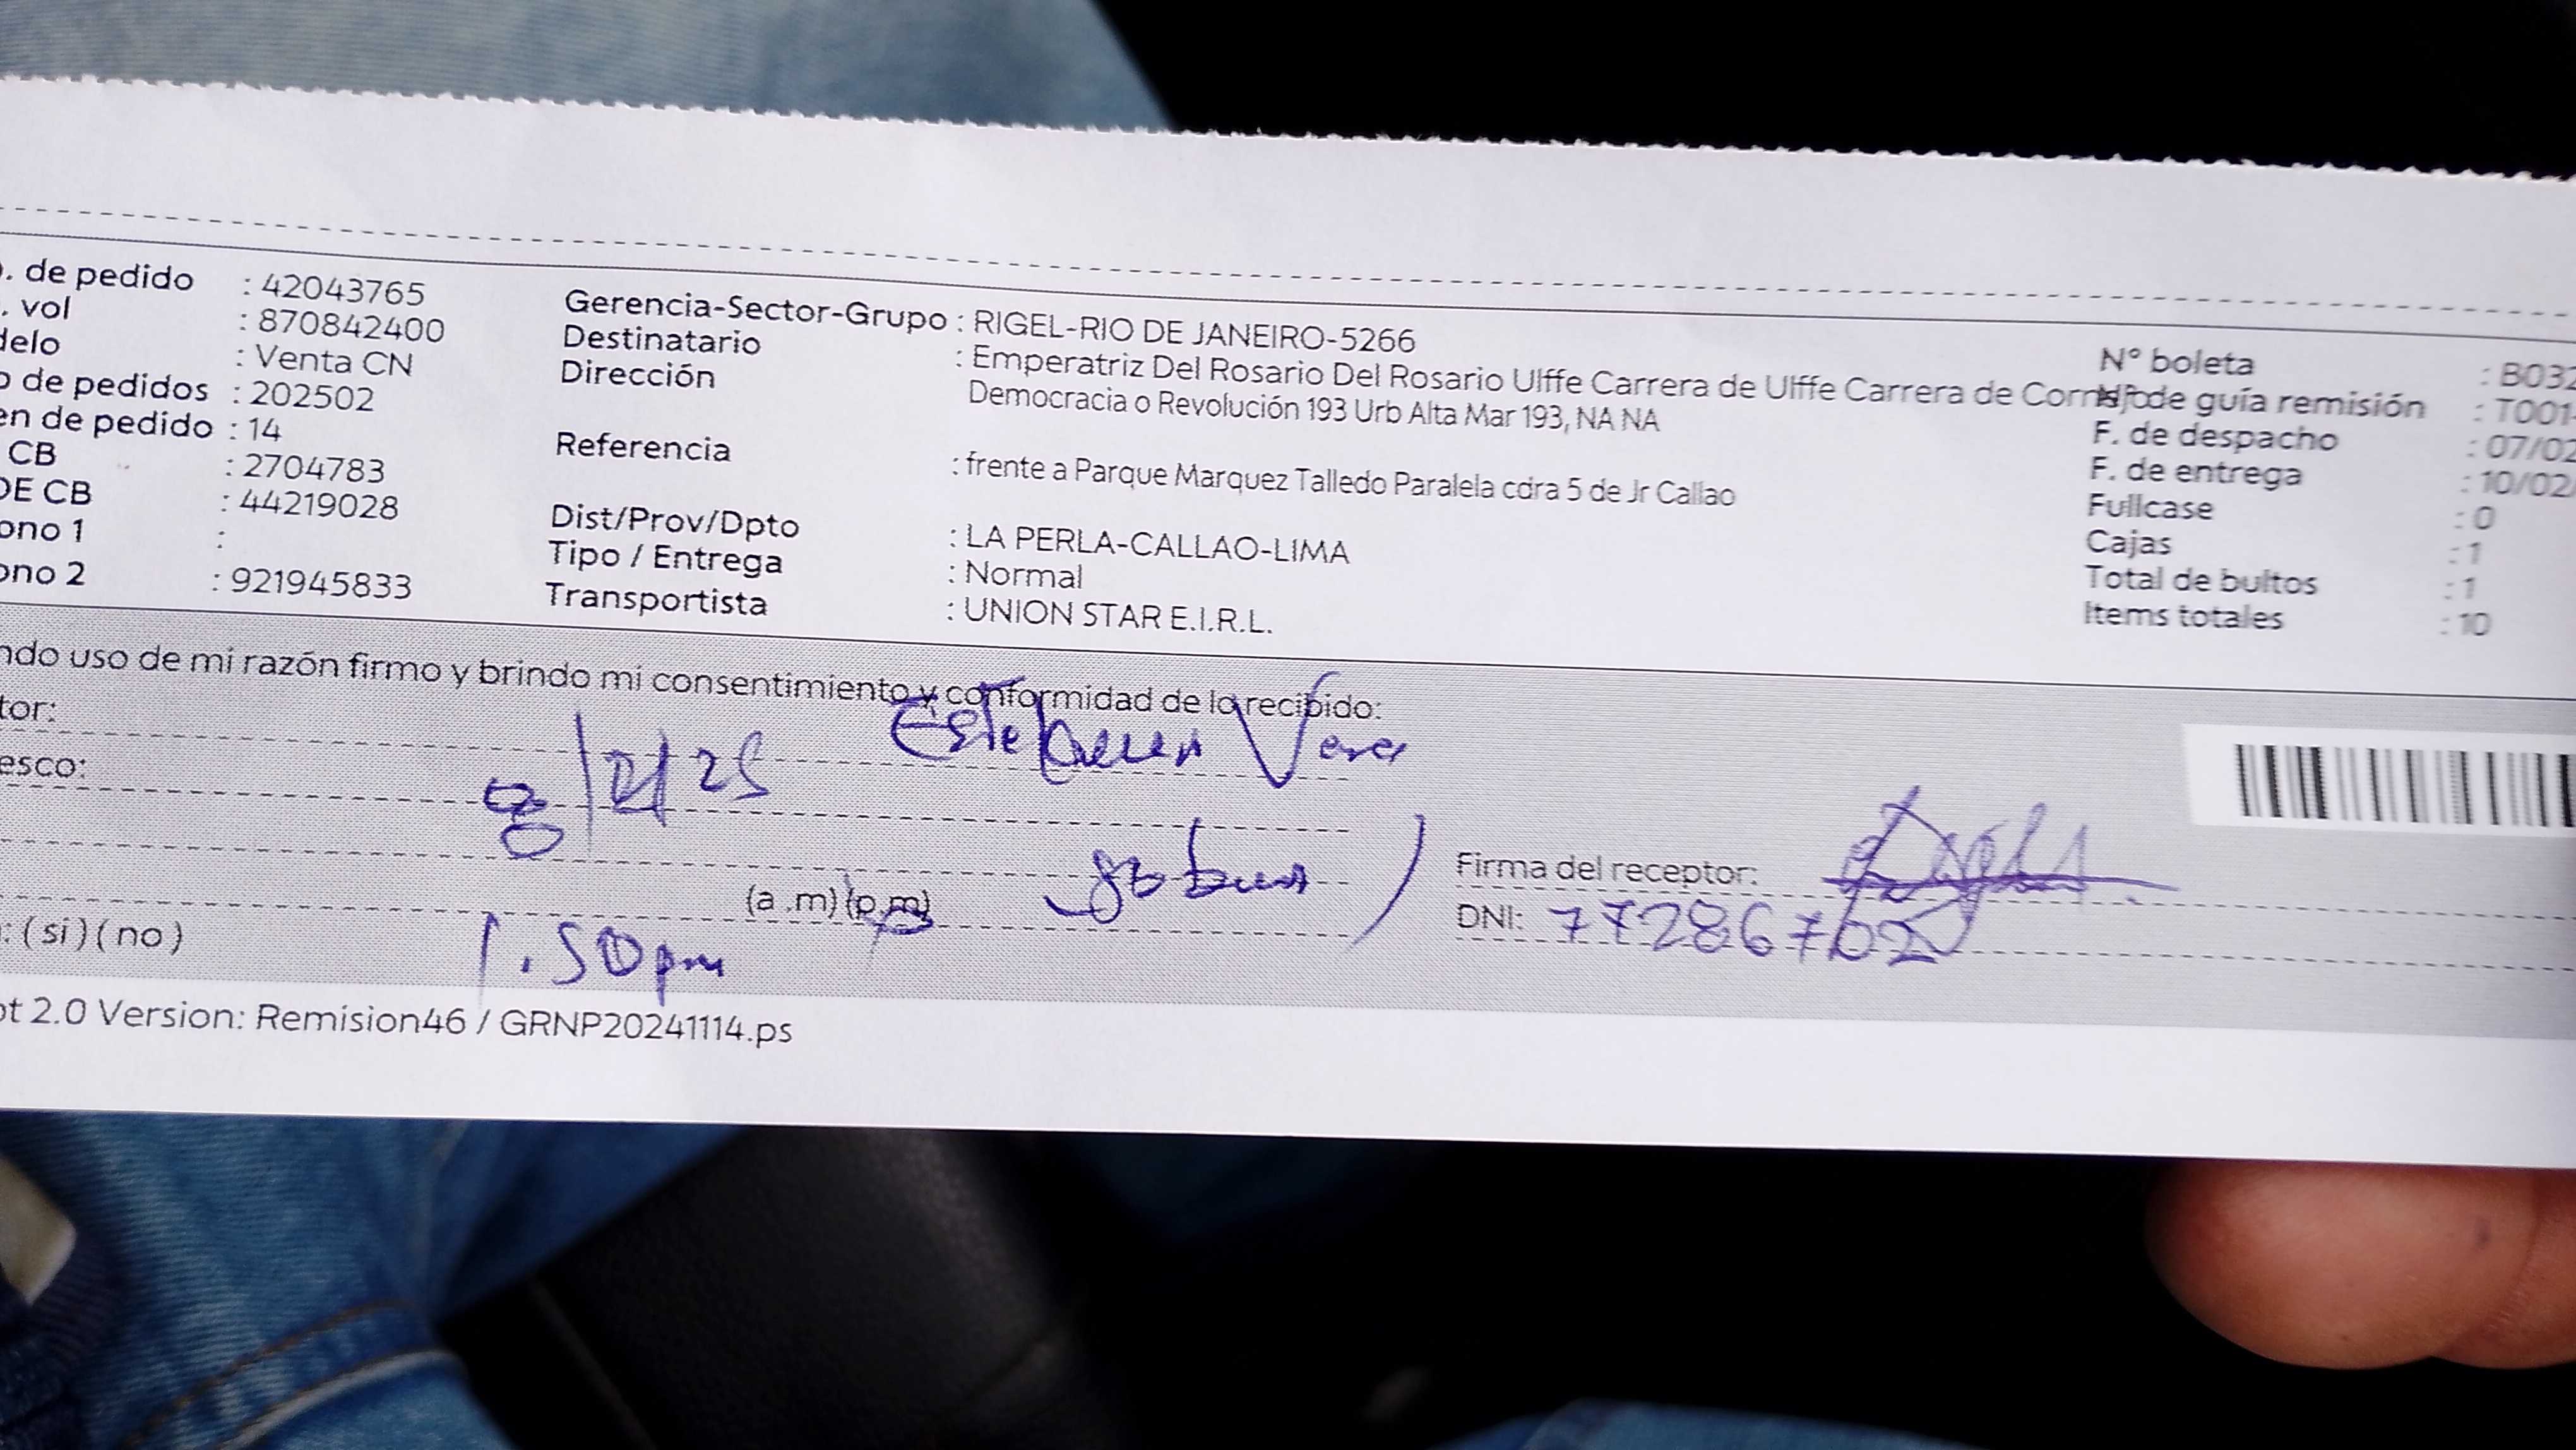 . de pedido : 42043765
. vol : 870842400
delo : Venta CN
o de pedidos : 202502
en de pedido : 14
CB : 2704783
DE CB : 44219028
ono 1 :
ono 2 : 921945833
Gerencia-Sector-Grupo : RIGEL-RIO DE JANEIRO-5266
Destinatario : Emperatriz Del Rosario Del Rosario Ulffe Carrera de Ulffe Carrera de Cornejo
Dirección Democracia o Revolución 193 Urb Alta Mar 193, NA NA
Referencia : frente a Parque Marquez Talledo Paralela cdra 5 de Jr Callao
Dist/Prov/Dpto : LA PERLA-CALLAO-LIMA
Tipo / Entrega : Normal
Transportista : UNION STAR E.I.R.L.
N° boleta : B032
N° de guía remisión : T001-
F. de despacho : 07/02
F. de entrega : 10/02
Fullcase : 0
Cajas : 1
Total de bultos : 1
Items totales : 10
ndo uso de mi razón firmo y brindo mi consentimiento y conformidad de lo recibido:
tor: Esteban Vera
esco: /25
(a .m) (p.m)
: ( si ) ( no ) 1.50 pm
Firma del receptor:
DNI: 77286702
pt 2.0 Version: Remision46 / GRNP20241114.ps